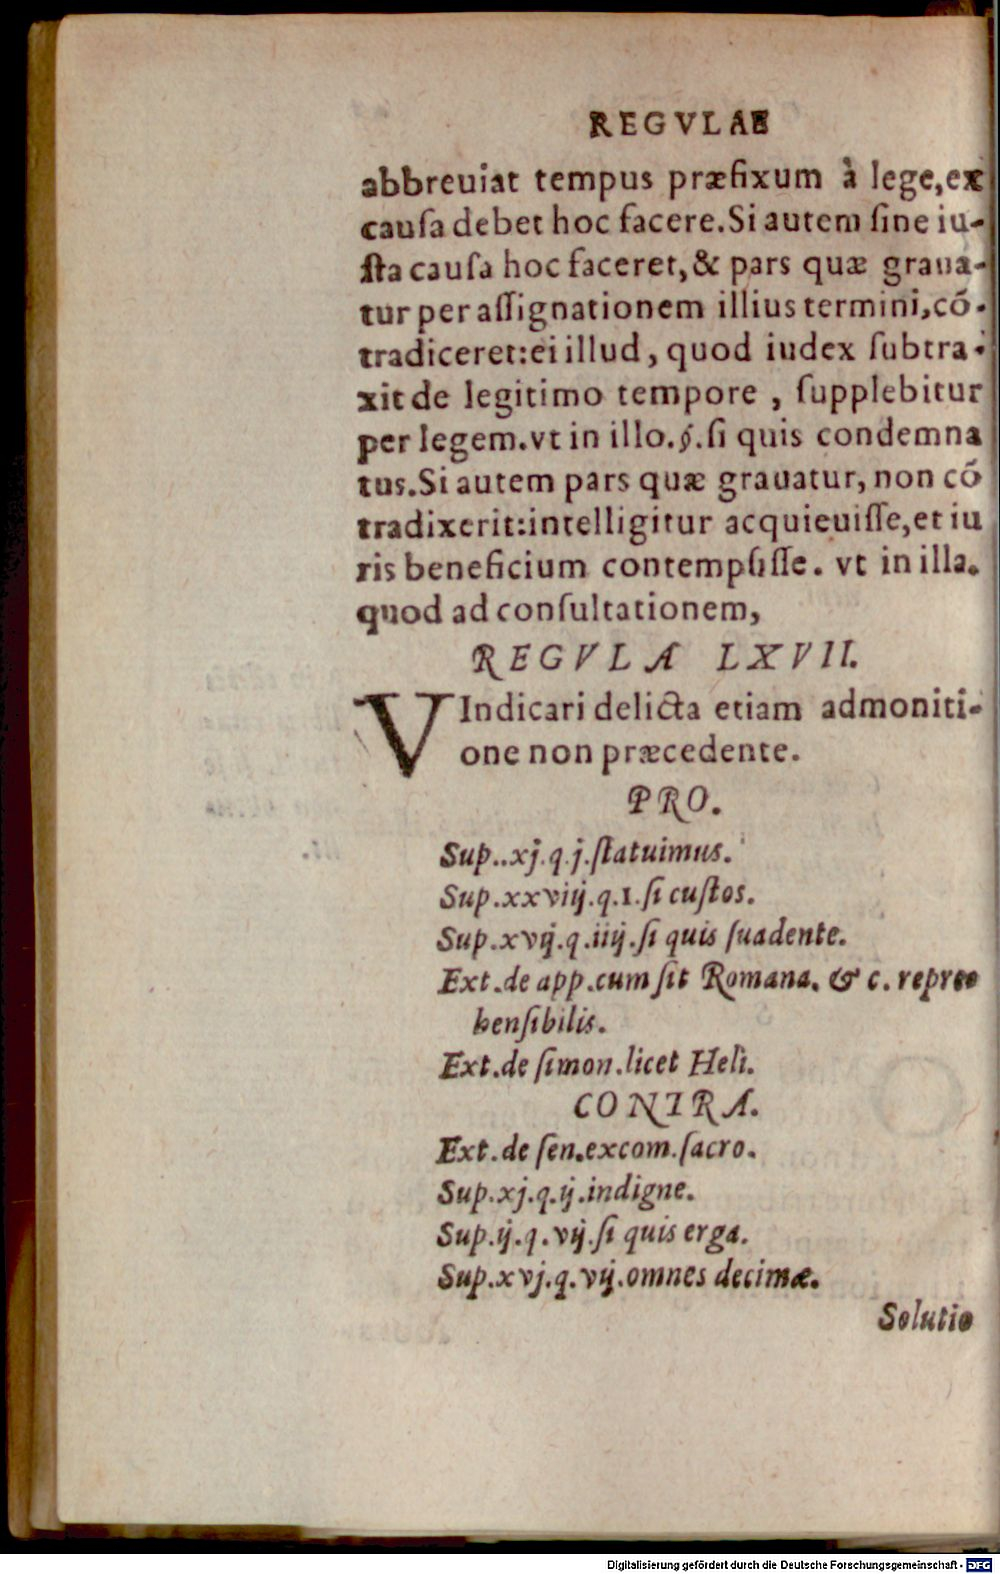 REGVLAE
abbreuiat tempus præfixum à lege,ex
cauſa debet hoc facere.Si autem ſine iu-
ſta cauſa hoc faceret,& pars quæ graua-
tur per aſſignationem illius termini,cõ-
tradiceret:ei illud, quod iudex ſubtra-
xit de legitimo tempore , ſupplebitur
per legem.vt in illo.§.ſi quis condemna
tus.Si autem pars quæ grauatur, non cõ
tradixerit:intelligitur acquieuiſſe,et iu
ris beneficium contempſiſſe. vt in illa.
quod ad conſultationem,
REGVLA LXVII.
VIndicari delicta etiam admoniti-
one non præcedente.
PRO.
Sup..xj.q.j.ſtatuimus.
Sup.xxviij.q.1.ſi cuſtos.
Sup.xvij.q.iiij.ſi quis ſuadente.
Ext.de app.cum ſit Romana. & c. repree
henſibilis.
Ext.de ſimon.licet Heli.
CONTRA.
Ext.de ſen.excom.ſacro.
Sup.xj.q.ij.indigne.
Sup.ij.q.vij.ſi quis erga.
Sup.xvj.q.vij.omnes decimæ.
Solutio
Digitalisierung gefördert durch die Deutsche Forschungsgemeinschaft - DFG